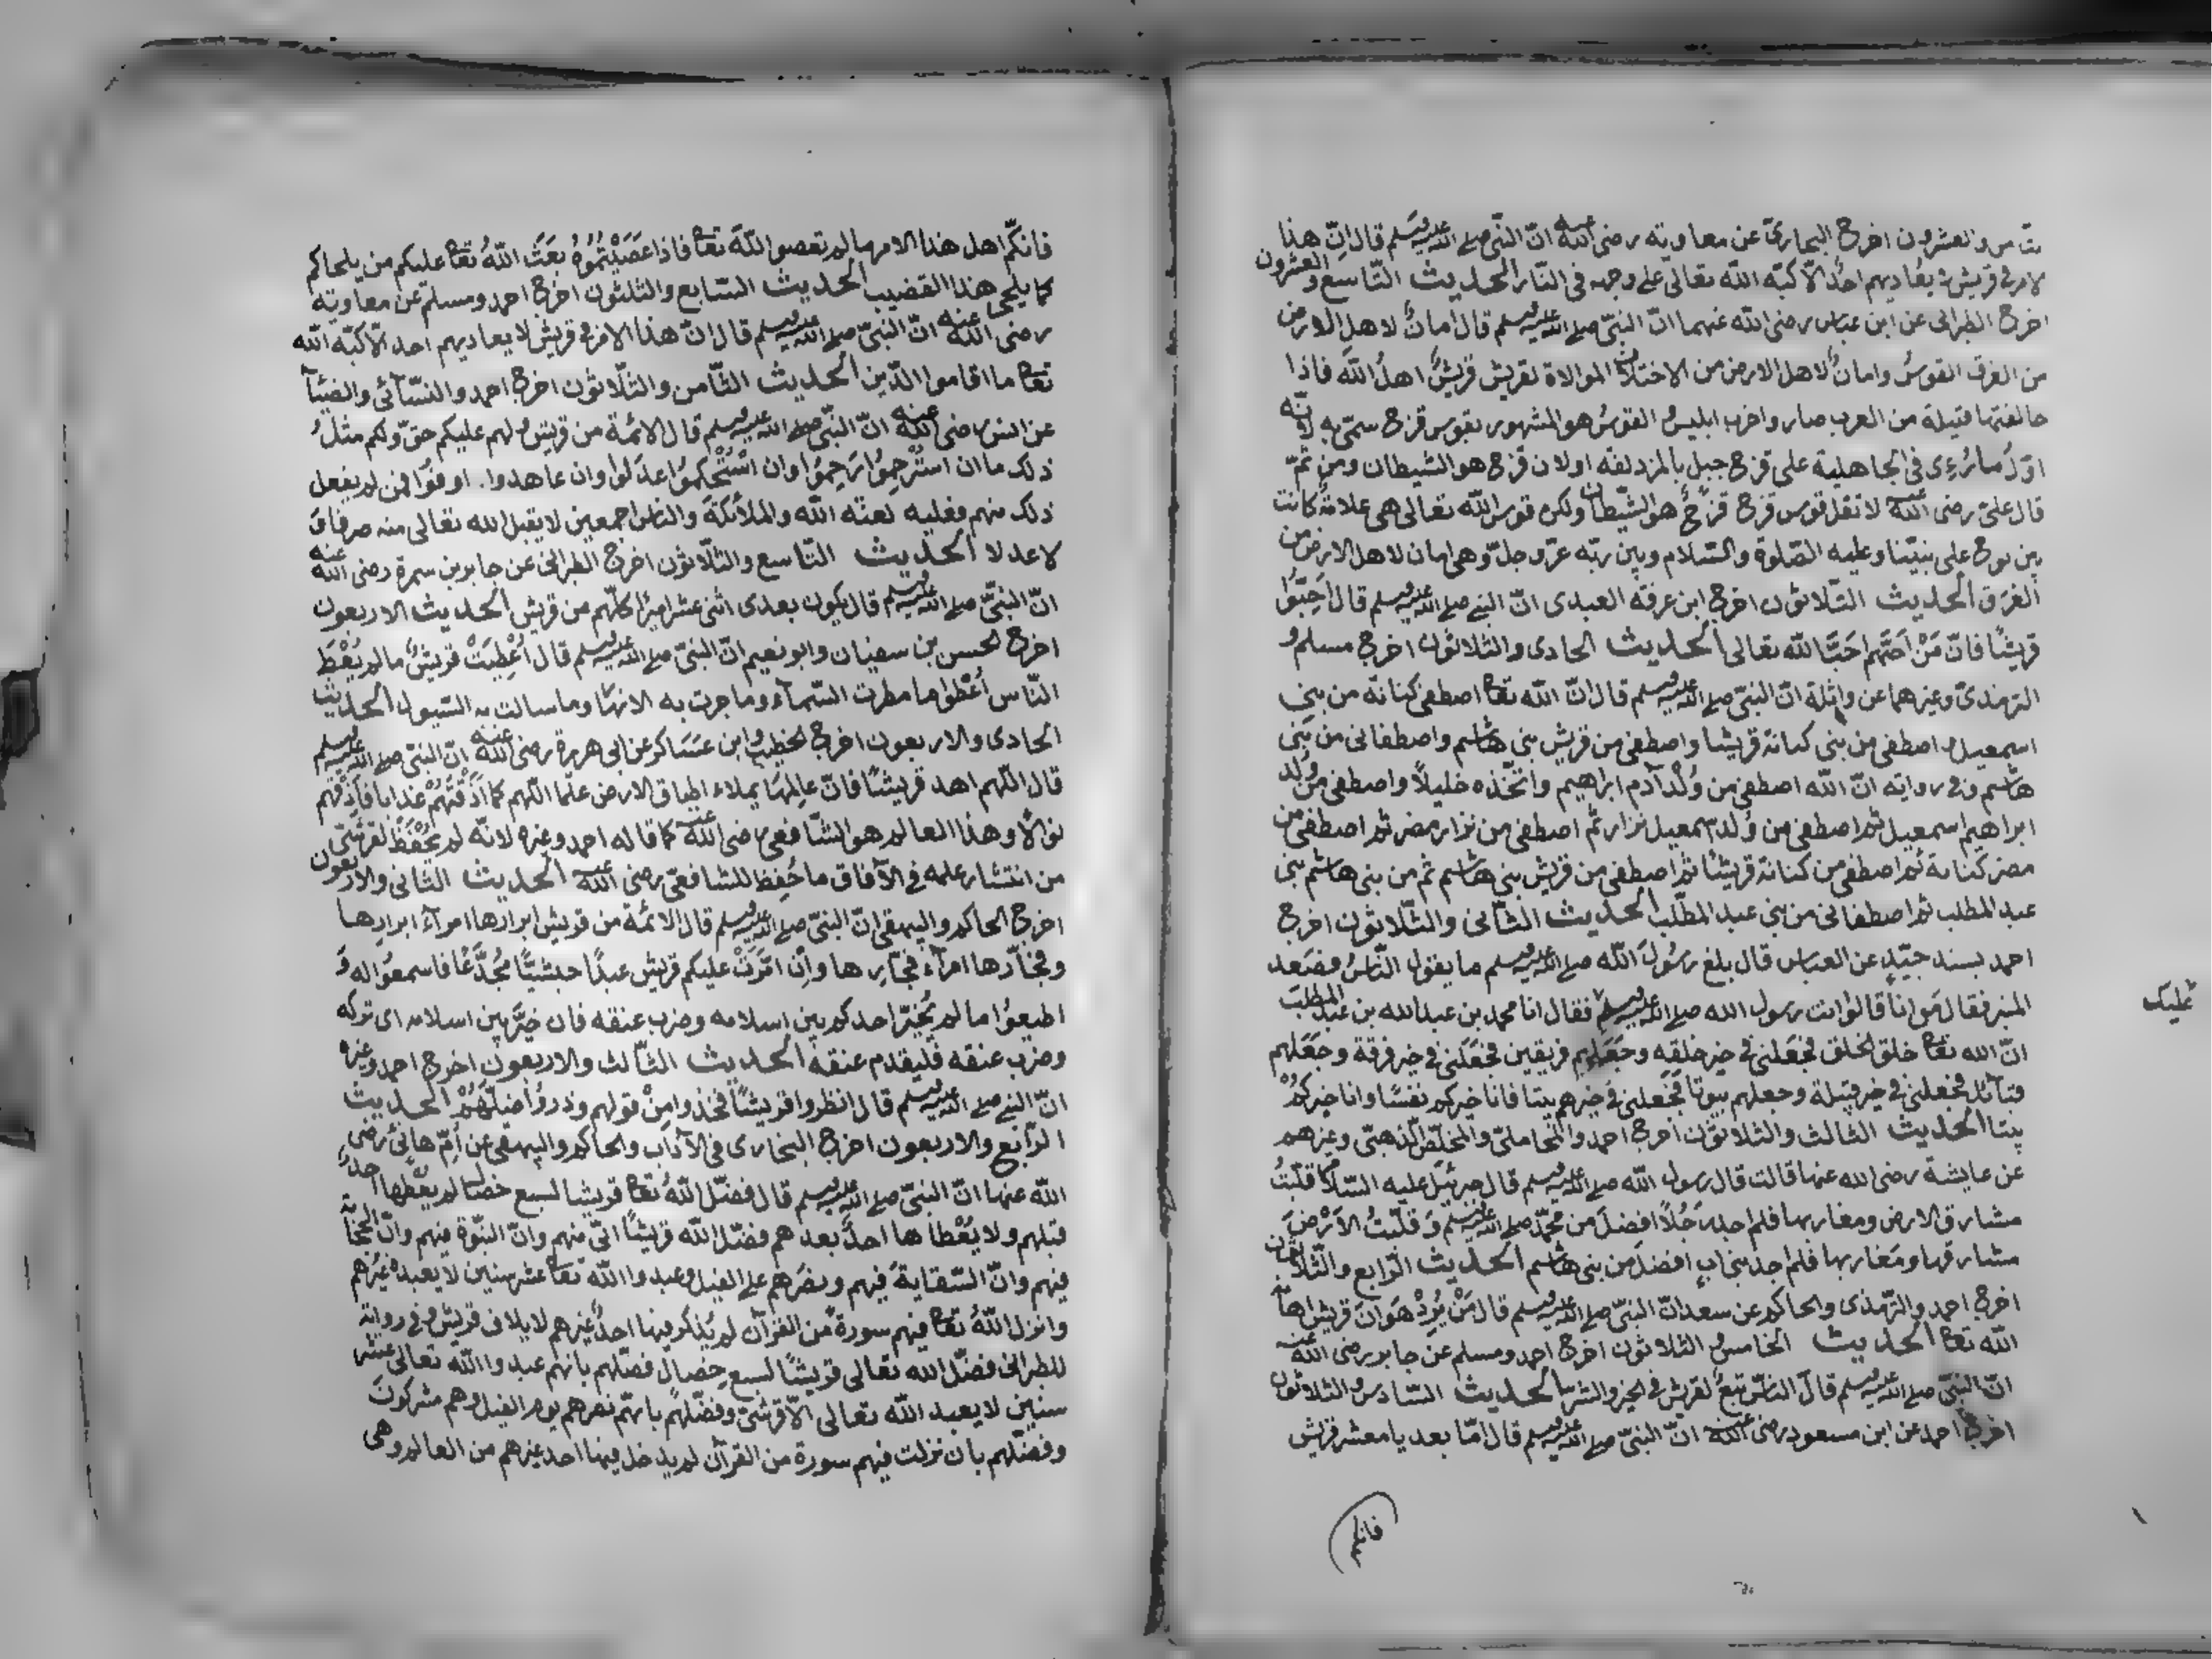 ثامن والعشرون اخرج البخاري عن معاوية رضى الله عنه انّ النبيّ صلى الله عليه وسلم قال انّ هذا
الامر في قريش لا يعاديهم احدٌ الّا كبّه الله تعالى على وجهه في النّار الحديث التّاسع والعشرون
اخرج الطبرانى عن ابن عباس رضى الله عنهما انّ النبيّ صلى الله عليه وسلم قال امانٌ لاهل الارض
من الغرق القوسُ وامانٌ لاهل الارض من الاختلاف الموالاة لقريش قريشٌ اهلُ الله فاذا
خالفتها قبيلة من العرب صاروا حزب ابليس القوسُ هو المشهور بقوس قزح سمّى به لانّه
اوّلُ ما رُءِى في الجاهلية على قزح جبل بالمزدلفه او لان قزح هو الشيطان ومن ثمّ
قال علىّ رضى الله عنه لا تقل قوس قزح قزحُ هو الشّيطان ولكن قوس الله تعالى هى علامةٌ كانت
بين نوح على نبيّنا وعليه الصّلوة والسّلام وبين ربّه عزّ وجلّ وهى امان لاهل الارض من
الغرق الحديث الثّلاثون اخرج ابن عرفة العبدى انّ النبي صلى الله عليه وسلم قال احِبّوا
قريشًا فانّ مَنْ احَبّهم احَبّه الله تعالى الحديث الحادى والثلاثون اخرج مسلم و
الترمذىّ وغيرهما عن واثلة انّ النبيّ صلى الله عليه وسلم قال انّ الله تعا اصطفى كنانة من بنى
اسمعيل واصطفى من بنى كنانة قريشا واصطفى من قريش بنى هاشم واصطفانى من بنى
هاشم وفى رواية انّ الله اصطفى من وُلْد آدم ابراهيم واتّخذه خليلاً واصطفى من وُلد
ابراهيم اسمعيل ثم اصطفى من وُلد اسمعيل نزار ثم اصطفى من نزار مضر ثم اصطفى من
مضر كنانة ثم اصطفى من كنانة قريشًا ثم اصطفى من قريش بنى هاشم ثم من بنى هاشم بنى
عبد المطلب ثم اصطفانى من بنى عبد المطّلب الحديث الثّانى والثّلاثون اخرج
احمد بسند جيّدٍ عن العباس قال بلغ رسُولَ الله صلى الله عليه وسلم ما يقول النّاسُ فصَعد
المنبر فقال مَن انا قالوا انت رسول الله صلى الله عليه وسلم فقال انا محمد بن عبد الله بن عبد المطلب
انّ الله تعا خلق الخلق فجَعلنى في خير خلقه وجَعَلهم فريقين فجَعَلنى في خير فرقة وجَعَلهم
قبآئل فجعلنى في خير قبيلة وجعلهم بيوتًا فجَعلنى في خيرهم بيتا فانا خيركم نفسًا وانا خيركُمْ
بيتا الحديث الثالث والثلاثون اخرج احمد والمحاملىّ والمخلّص الذهبىّ وغيرهم
عن عايشة رضى الله عنها قالت قال رسول الله صلى الله عليه وسلم قال جبرئيل عليه السّلام قلّبتُ
مشارق الارض ومغاربها فلم اجد رَجُلاً افضلَ من محمّد صلى الله عليه وسلم وَقلّبتُ الاَرْضَ
مشارقها ومَغاربها فلم اجد بنى ابٍ افضلَ من بنى هاشم الحديث الرّابع والثّلاثون
اخرج احمد والترّمذى والحاكم عن سعد انّ النبيّ صلى الله عليه وسلم قال مَنْ يُرِدْ هَوَانَ قريش اهانه
الله تعا الحديث الخامسُ الثلاثون اخرج احمد ومسلم عن جابر رضى الله عنه
انّ النبيّ صلى الله عليه وسلم قال النّاس تبعٌ لقريش في الخير والشرّ الحديث السّادس والثلاثون
اخرج احمد عن ابن مسعود رضى الله عنه انّ النبيّ صلى الله عليه وسلم قال امّا بعد يا معشر قريش
فانكم
فانكّم اهل هذا الامر ما لم تعصوا اللّهَ تعا فاذا عَصَيْتُمُوهُ بعَثَ اللّهُ تعا عليكم من يلحاكم
كما يلحى هذا القضيب الحديث السّابع والثلثون اخرج احمد ومسلم عن معاوية
رضى الله عنه انّ النبيّ صلى الله عليه وسلم قال انّ هذا الامر في قريش لا يعاديهم احد الّا كبّه الله
تعا ما اقاموا الدّين الحديث الثّامن والثّلاثون اخرج احمد والنسّآئى والضيآ
عن انس رضى الله عنه انّ النبّى صلى الله عليه وسلم قال الائمة من قريش ولهم عليكم حقّ ولكم مثلُ
ذلك ما ان استُرْحِمُوا رَحِمُوا وان اسْتُحْكِموُا عدَلوا وان عاهدوا اوفَوْا فمن لم يفعل
ذلك منهم فعليه لعنة الله والملآئكة والناس اجمعين لا يقبل الله تعالى منه صرفا و
لا عدلا الحديث التّاسع والثّلاثون اخرج الطبرانى عن جابر بن سمرة رضى الله عنه
انّ النبيّ صلى الله عليه وسلم قال يكون بعدى اثنى عشر اميرًا كلّهم من قريش الحديث الاربعون
اخرج الحسن بن سفيان وابو نعيم انّ النبيّ صلى الله عليه وسلم قال اُعْطِيَتْ قريشٌ ما لم يُعْطَ
النّاس اُعْطُوا ما مطرت السّمآء وما جرت به الانهار وما سالت به السّيول الحديث
الحادى والاربعون اخرج الخطيب وابن عسَاكر عن ابى هريرة رضى الله عنه انّ النبيّ صلى الله عليه وسلم
قال اللّهم اهد قريشًا فانّ عالِمهَا يملاء اطباق الارض علمًا اللّهم كما اَذَقتَهُمْ عذابا فاَذِقْهُم
نوالًا وهذا العالم هو الشّافعىّ رضى الله عنه كما قاله احمد وغيره لانّه لم يُحْفَظْ لقرشىّ
من انتشار علمه في الآفاق ما حُفِظ للشافعىّ رضى الله عنه الحديث الثانى والاربعون
اخرج الحاكم والبيهقى انّ النبيّ صلى الله عليه وسلم قال الائمة من قريش ابرارها امرآءُ ابرارِها
وفجّارُها امرآء فجّارِها وانْ امّرَتْ عليكم قريش عبدًا حبشيًّا مُجَدّعًا فاسمعُوا له وَ
اطيعوُا ما لم يُخيّر احدكم بين اسلامه وضرب عنقه فان خُيّر بين اسلامه اى تركه
وضرب عنقه فليقدم عنقه الحديث الثّالث والاربعون اخرج احمد وغيره
انّ النبى صلى الله عليه وسلم قال انظروا قريشًا فخذوا مِنْ قولهم وذروُا فعلَهُمْ الحديث
الرّابع والاربعون اخرج البخارى في الآداب والحاكم والبيهقى عن اُمّ هانئ رضى
الله عنها انّ النبيّ صلى الله عليه وسلم قال فضّل اللّهُ تعا قريشا بسبع خصال لم يعطها احدٌ
قبلهم ولا يُعْطاها احدٌ بعدهم فضّل الله قريشًا انّى منهم وانّ النبوّة فيهم وانّ الحجابة
فيهم وانّ السّقاية فيهم ونصَرهم على الفيل وعبدوا الله تعا عشر سنين لا يعبده غيرُهم
وانزل اللّهُ تعا فيهم سورةً من القرآن لم يُذكر فيها احدٌ غيرهم لايلاف قريش وفى رواية
للطبرانى فضّل الله تعالى قريشًا بسبع خصال فضّلهم بانهم عبدوا الله تعالى عشر
سنين لا يعبد الله تعالى الّا قرشىّ وفضّلهم بانهّ نصرهم يوم الفيل وهم مشركونَ
وفضّلهم بان نزلت فيهم سورة من القرآن لم يدخل فيها احد غيرهم من العالم وهى